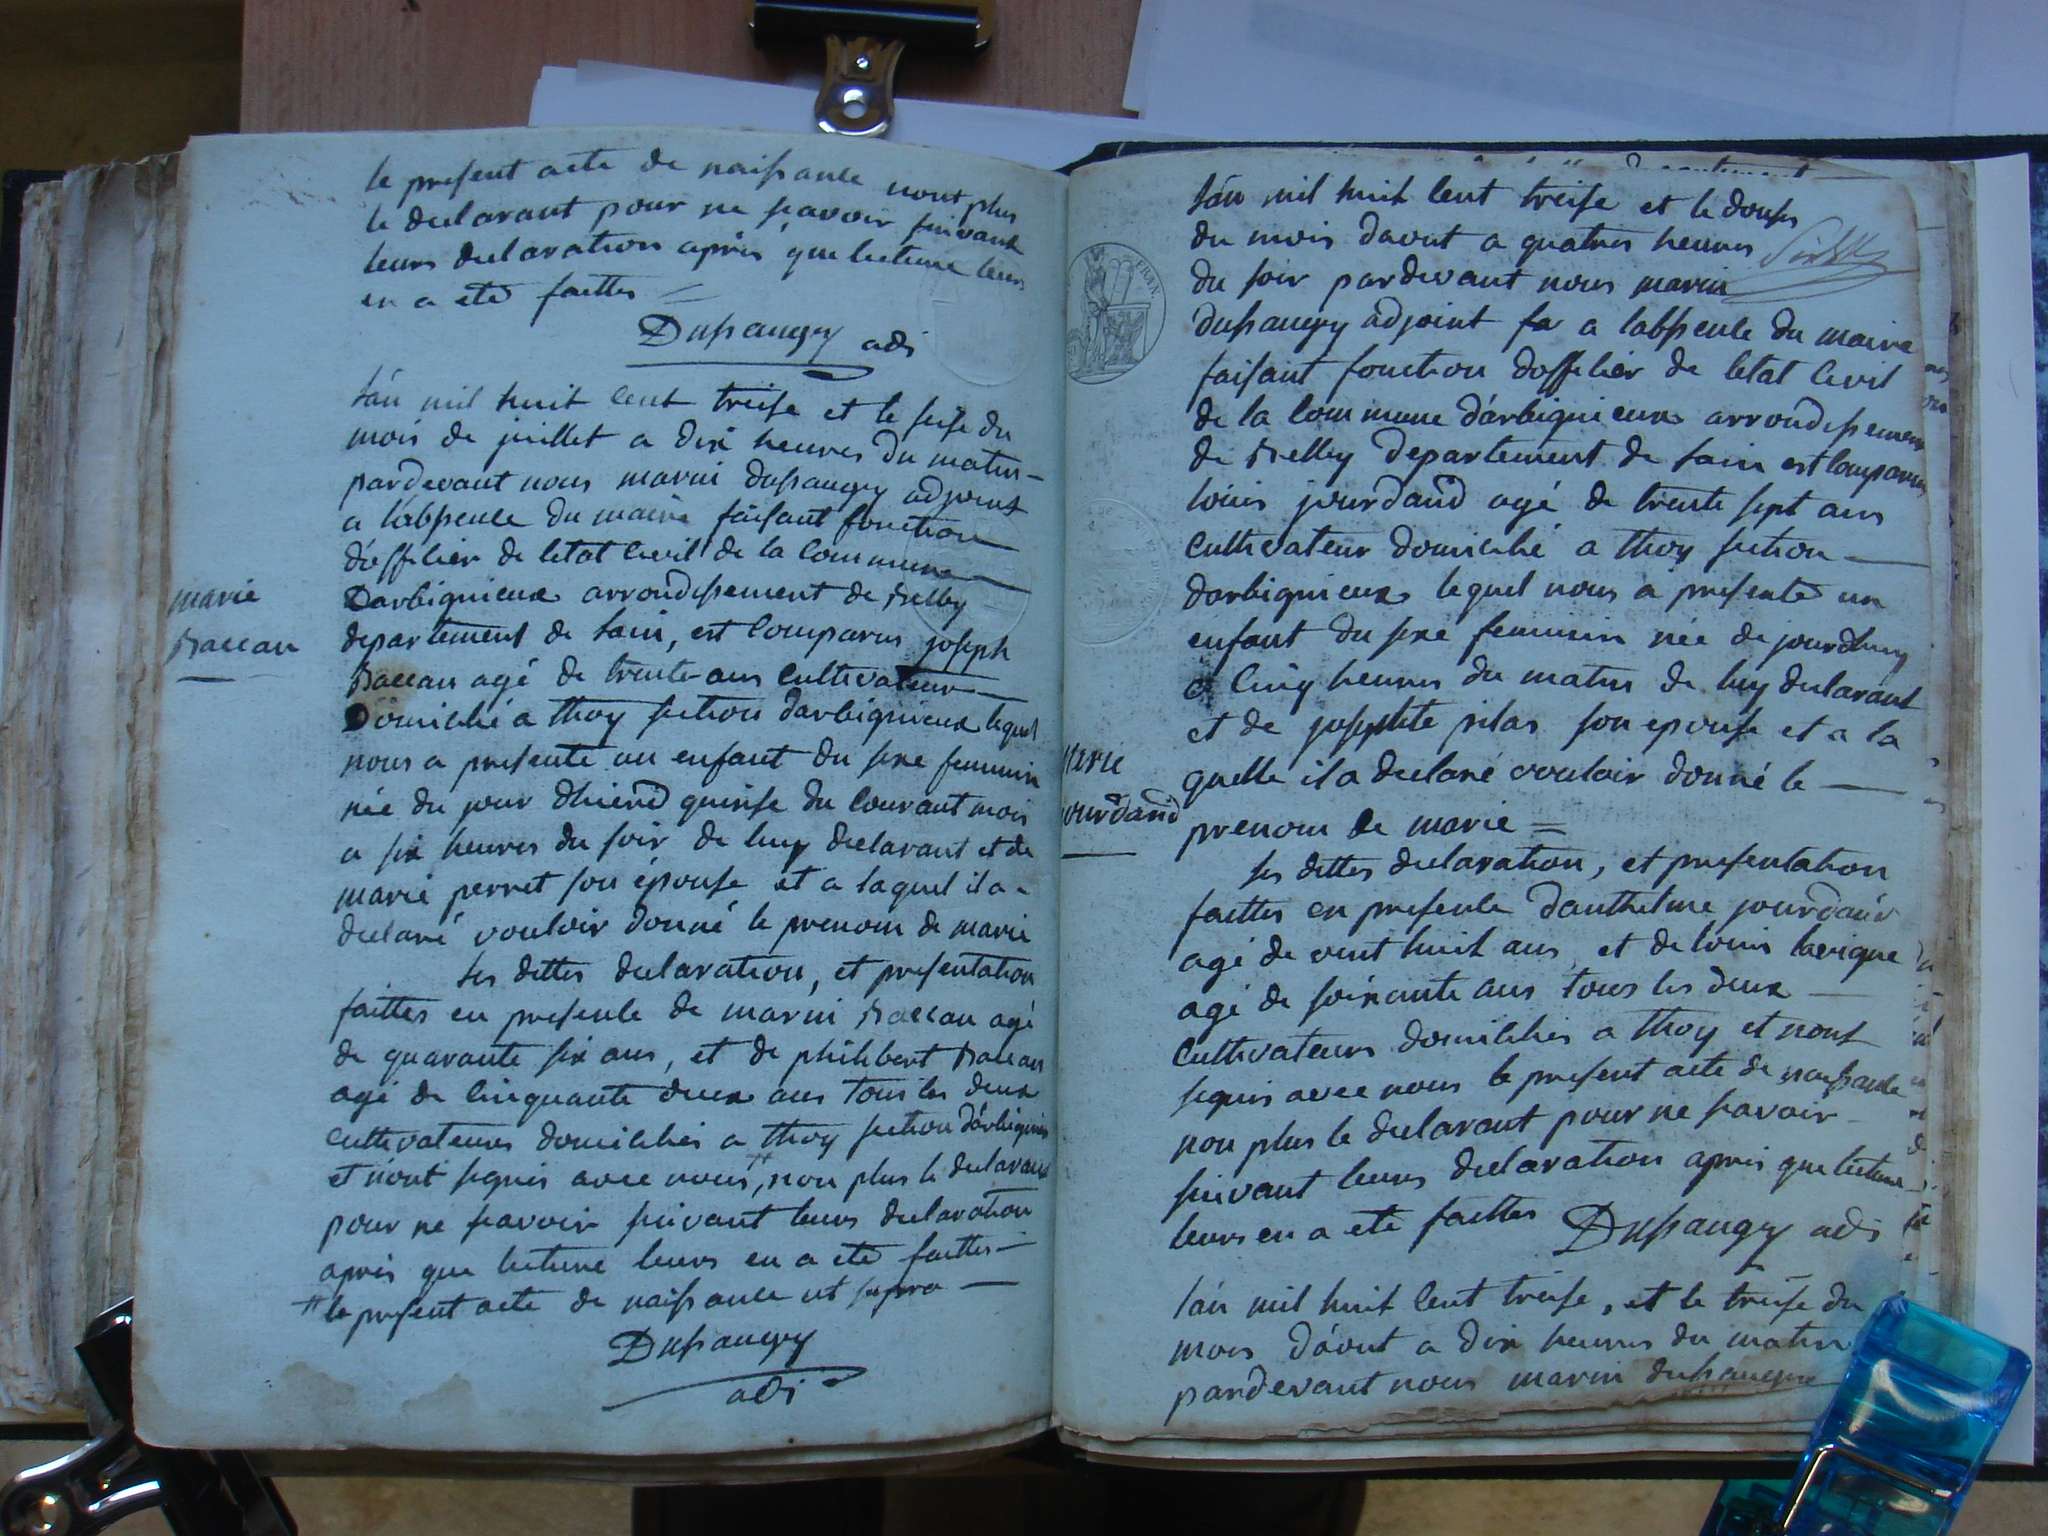 le present acte de naissance nont plus
le declarant pour ne scavoir suivant
leurs declaration après que lecture leurs
en a eté faittes
Dussaugey adj
L'an mil huit cent treise et le seise du
mois de juillet a dix heures du matin
pardevant nous marin dussaugey adjoint
a l'abscence du maire faisant fonction
d'officier de letat civil de la commune
Darbignieux arrondissement de Belley
departement de Lain, est comparus joseph
Baccan agé de trente ans cultivateur
Domicilié a thoy section darbignieux lequel
nous a presenté un enfant du sexe feminin
née du jour dhierd quinse du courant mois
a six heures du soir de luy declarant et de
marie perret son épouse et a laquel il a
declaré vouloir donné le prenom de marie
Marie
Baccan
Les dittes declaration, et presentation
faittes en presence de marin Baccan agé
de quarante six ans, et de philibert Baccan
agé de cinquante deux ans tous les deux
cultivateurs domiciliés a thoy section d'arbignieux
et nont signés avec nous, non plus le declarant
pour ne scavoir suivant leurs declaration
après que lecture leurs en a eté faittes
# le present acte de naissance ut supra
Dussaugey
adj
L'an mil huit cent treise et le douse
du mois daout a quatres heures
du soir pardevant nous marin
dussaugey adjoint fa a labscence du maire
faisant fonction dofficier de letat civil
de la commune d'arbignieux arrondissement
de Belley departement de Lain est comparus
louis jourdand agé de trente sept ans
cultivateur domicilié a thoy section
darbignieux lequel nous a presenté un
enfant du sexe feminin née de jourdhuy
a cinq heures du matin de luy declarant
et de josephte pilas son epouse et a la
quelle il a declaré vouloir donné le
prenom de marie
Marie
jourdand
Les dittes declaration, et presentation
faittes en presence d'anthelme jourdand
agé de vint huit ans, et de louis lavigne
agé de soixante ans tous les deux
cultivateurs domiciliés a thoy et nont
signés avec nous le present acte de naissance
non plus le declarant pour ne scavoir
suivant leurs declaration après que lecture
leurs en a eté faittes Dussaugey adj
L'an mil huit cent treise, et le treise du
mois d'aout a dix heures du matin
pardevant nous marin dussaugey